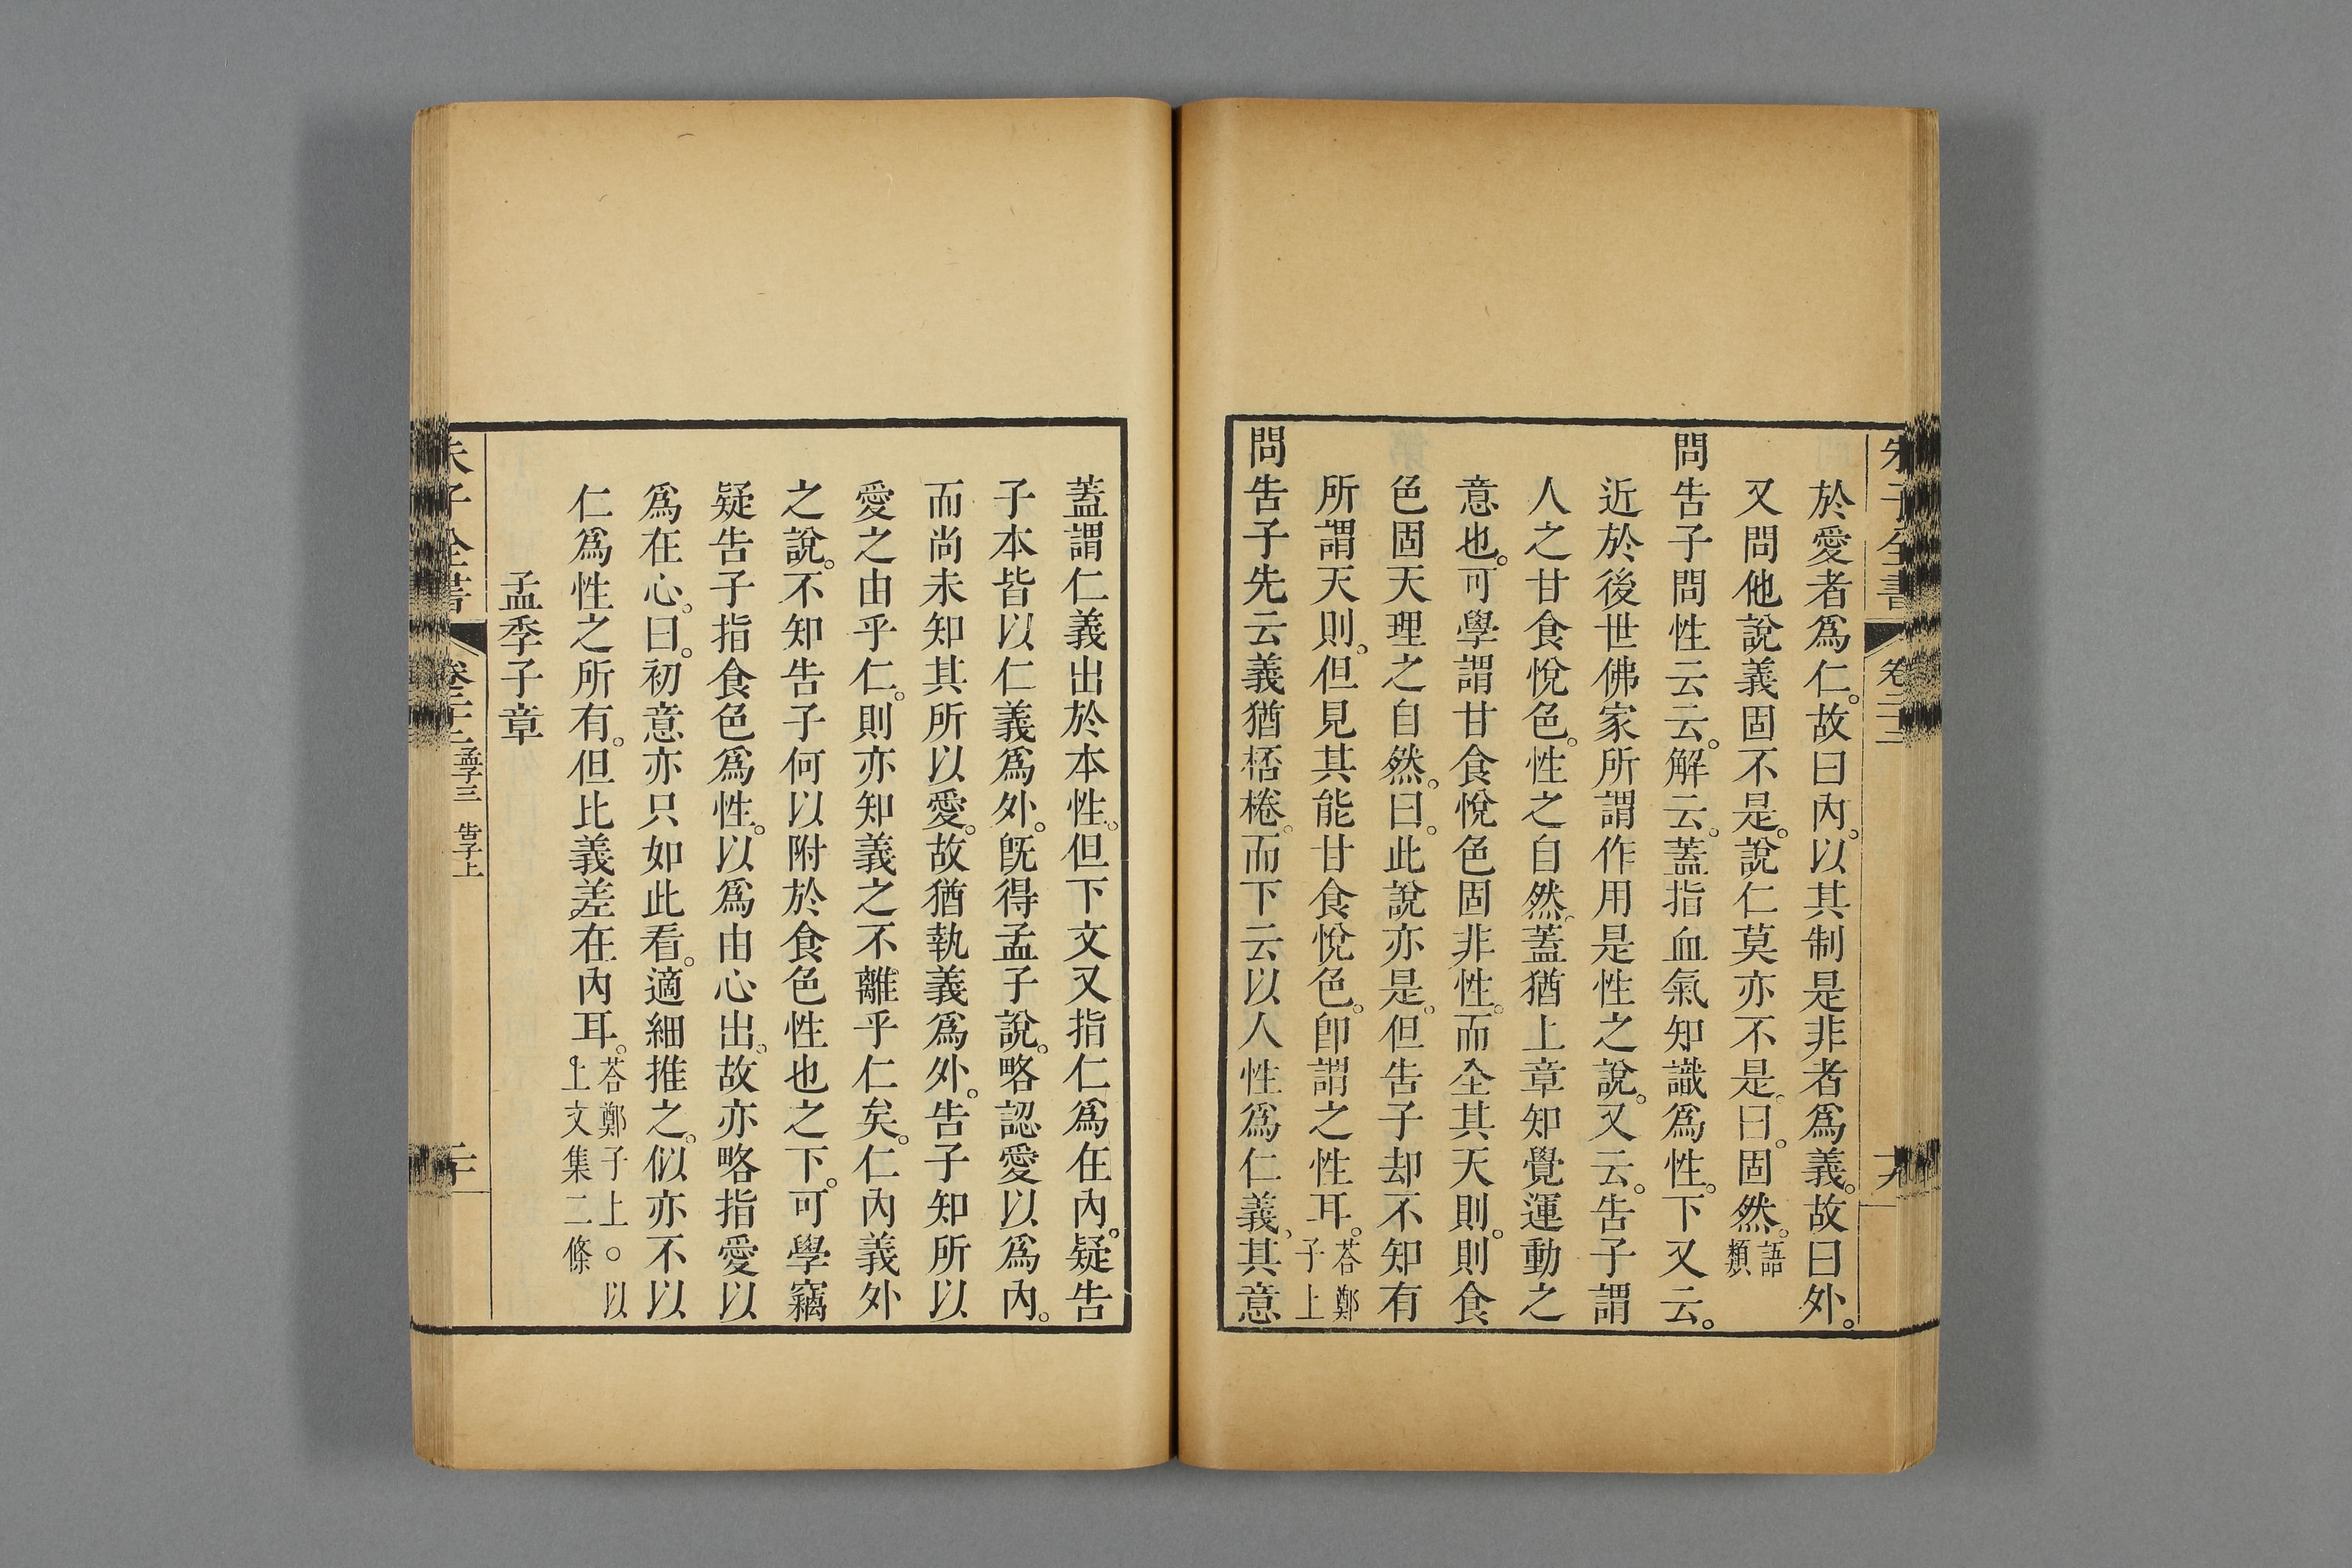 朱子全書 卷二十二 十九
於愛者爲仁。故曰內。以其制是非者爲義。故曰外。
又問他說義固不是。說仁莫亦不是。曰。固然。語類
問告子問性云云。解云。蓋指血氣知識爲性。下又云。
近於後世佛家所謂作用是性之說。又云。告子謂
人之甘食悅色。性之自然。蓋猶上章知覺運動之
意也。可學謂甘食悅色固非性。而全其天則。則食
色固天理之自然。曰。此說亦是。但告子却不知有
所謂天則。但見其能甘食悅色。卽謂之性耳。荅鄭子上
問告子先云義猶桮棬。而下云以人性爲仁義、其意
蓋謂仁義出於本性。但下文又指仁爲在內。疑告
子本皆以仁義爲外。旣得孟子說。略認愛以爲內。
而尚未知其所以愛。故猶執義爲外。告子知所以
愛之由乎仁。則亦知義之不離乎仁矣。仁內義外
之說。不知告子何以附於食色性也之下。可學竊
疑告子指食色爲性。以爲由心出。故亦略指愛以
爲在心。曰。初意亦只如此看。適細推之。似亦不以
仁爲性之所有。但比義差在內耳。荅鄭子上。以上文集二條
孟季子章
朱子全書 孟子三 告子上 二十